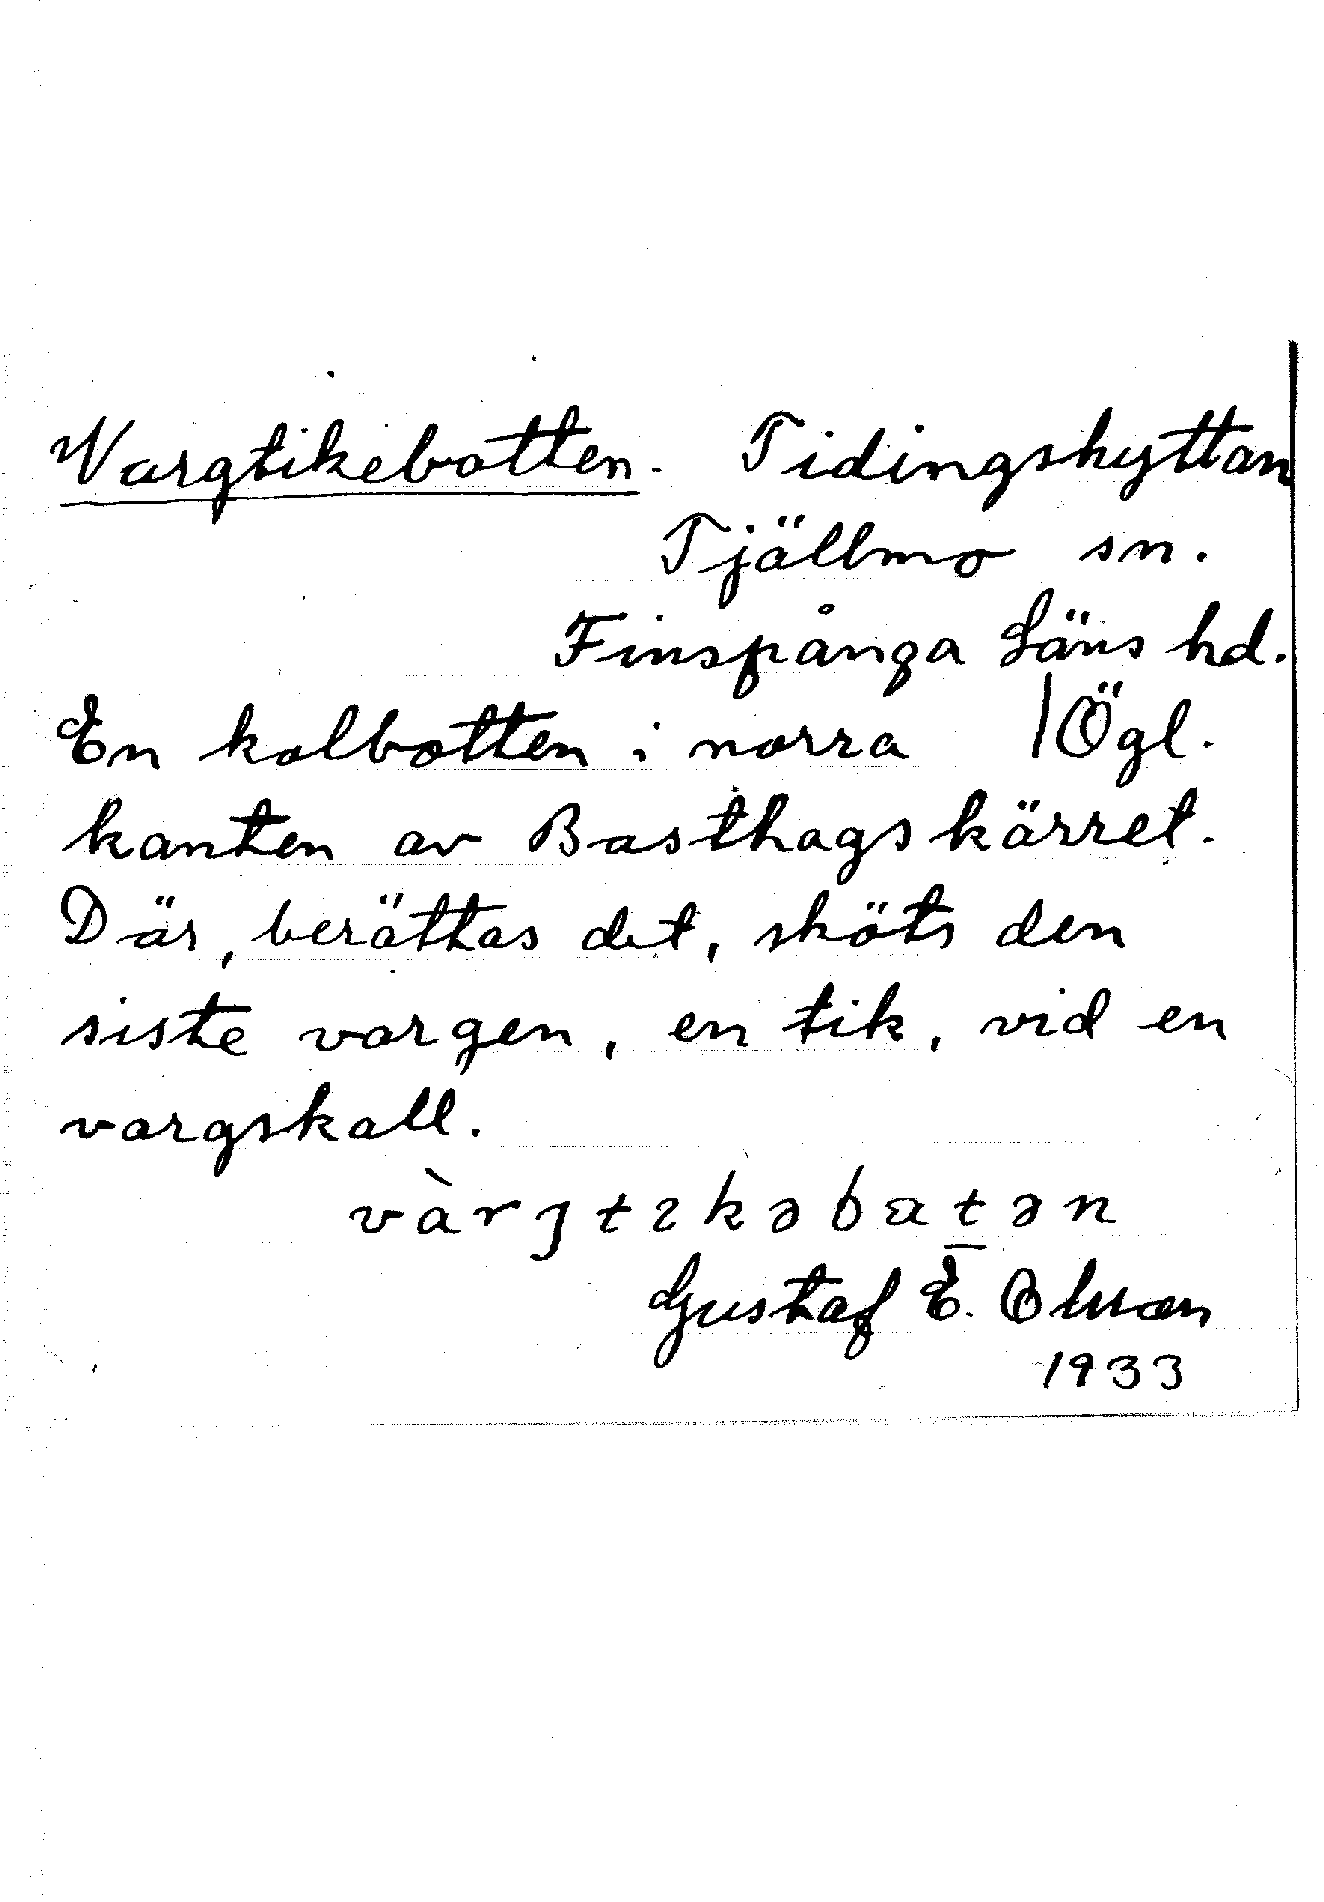 Vargtikebotten. Tidingshyttan
Tjällmo sn.
Finspånga Läns hd.
En kolbotten i norra /Ögl.
kanten av Basthagskärret.
Där, berättas det, sköts den
siste vargen, en tik, vid en
vargskall.
Gustaf E. Olsson
1933